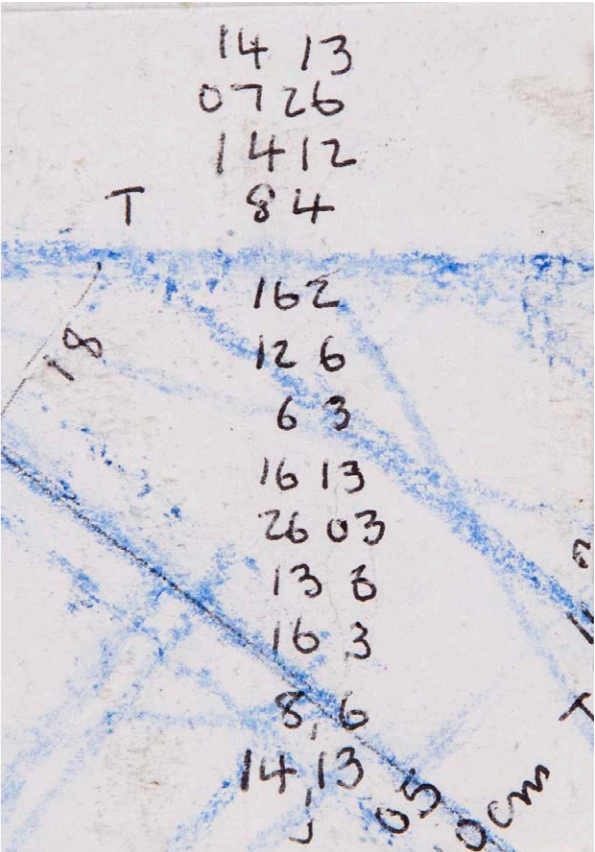 14 13
0726
1412
T 84
162
18
12 6
6 3
16 13
26 03
13 6
16 3
8,6
T
14,13
05 0cm